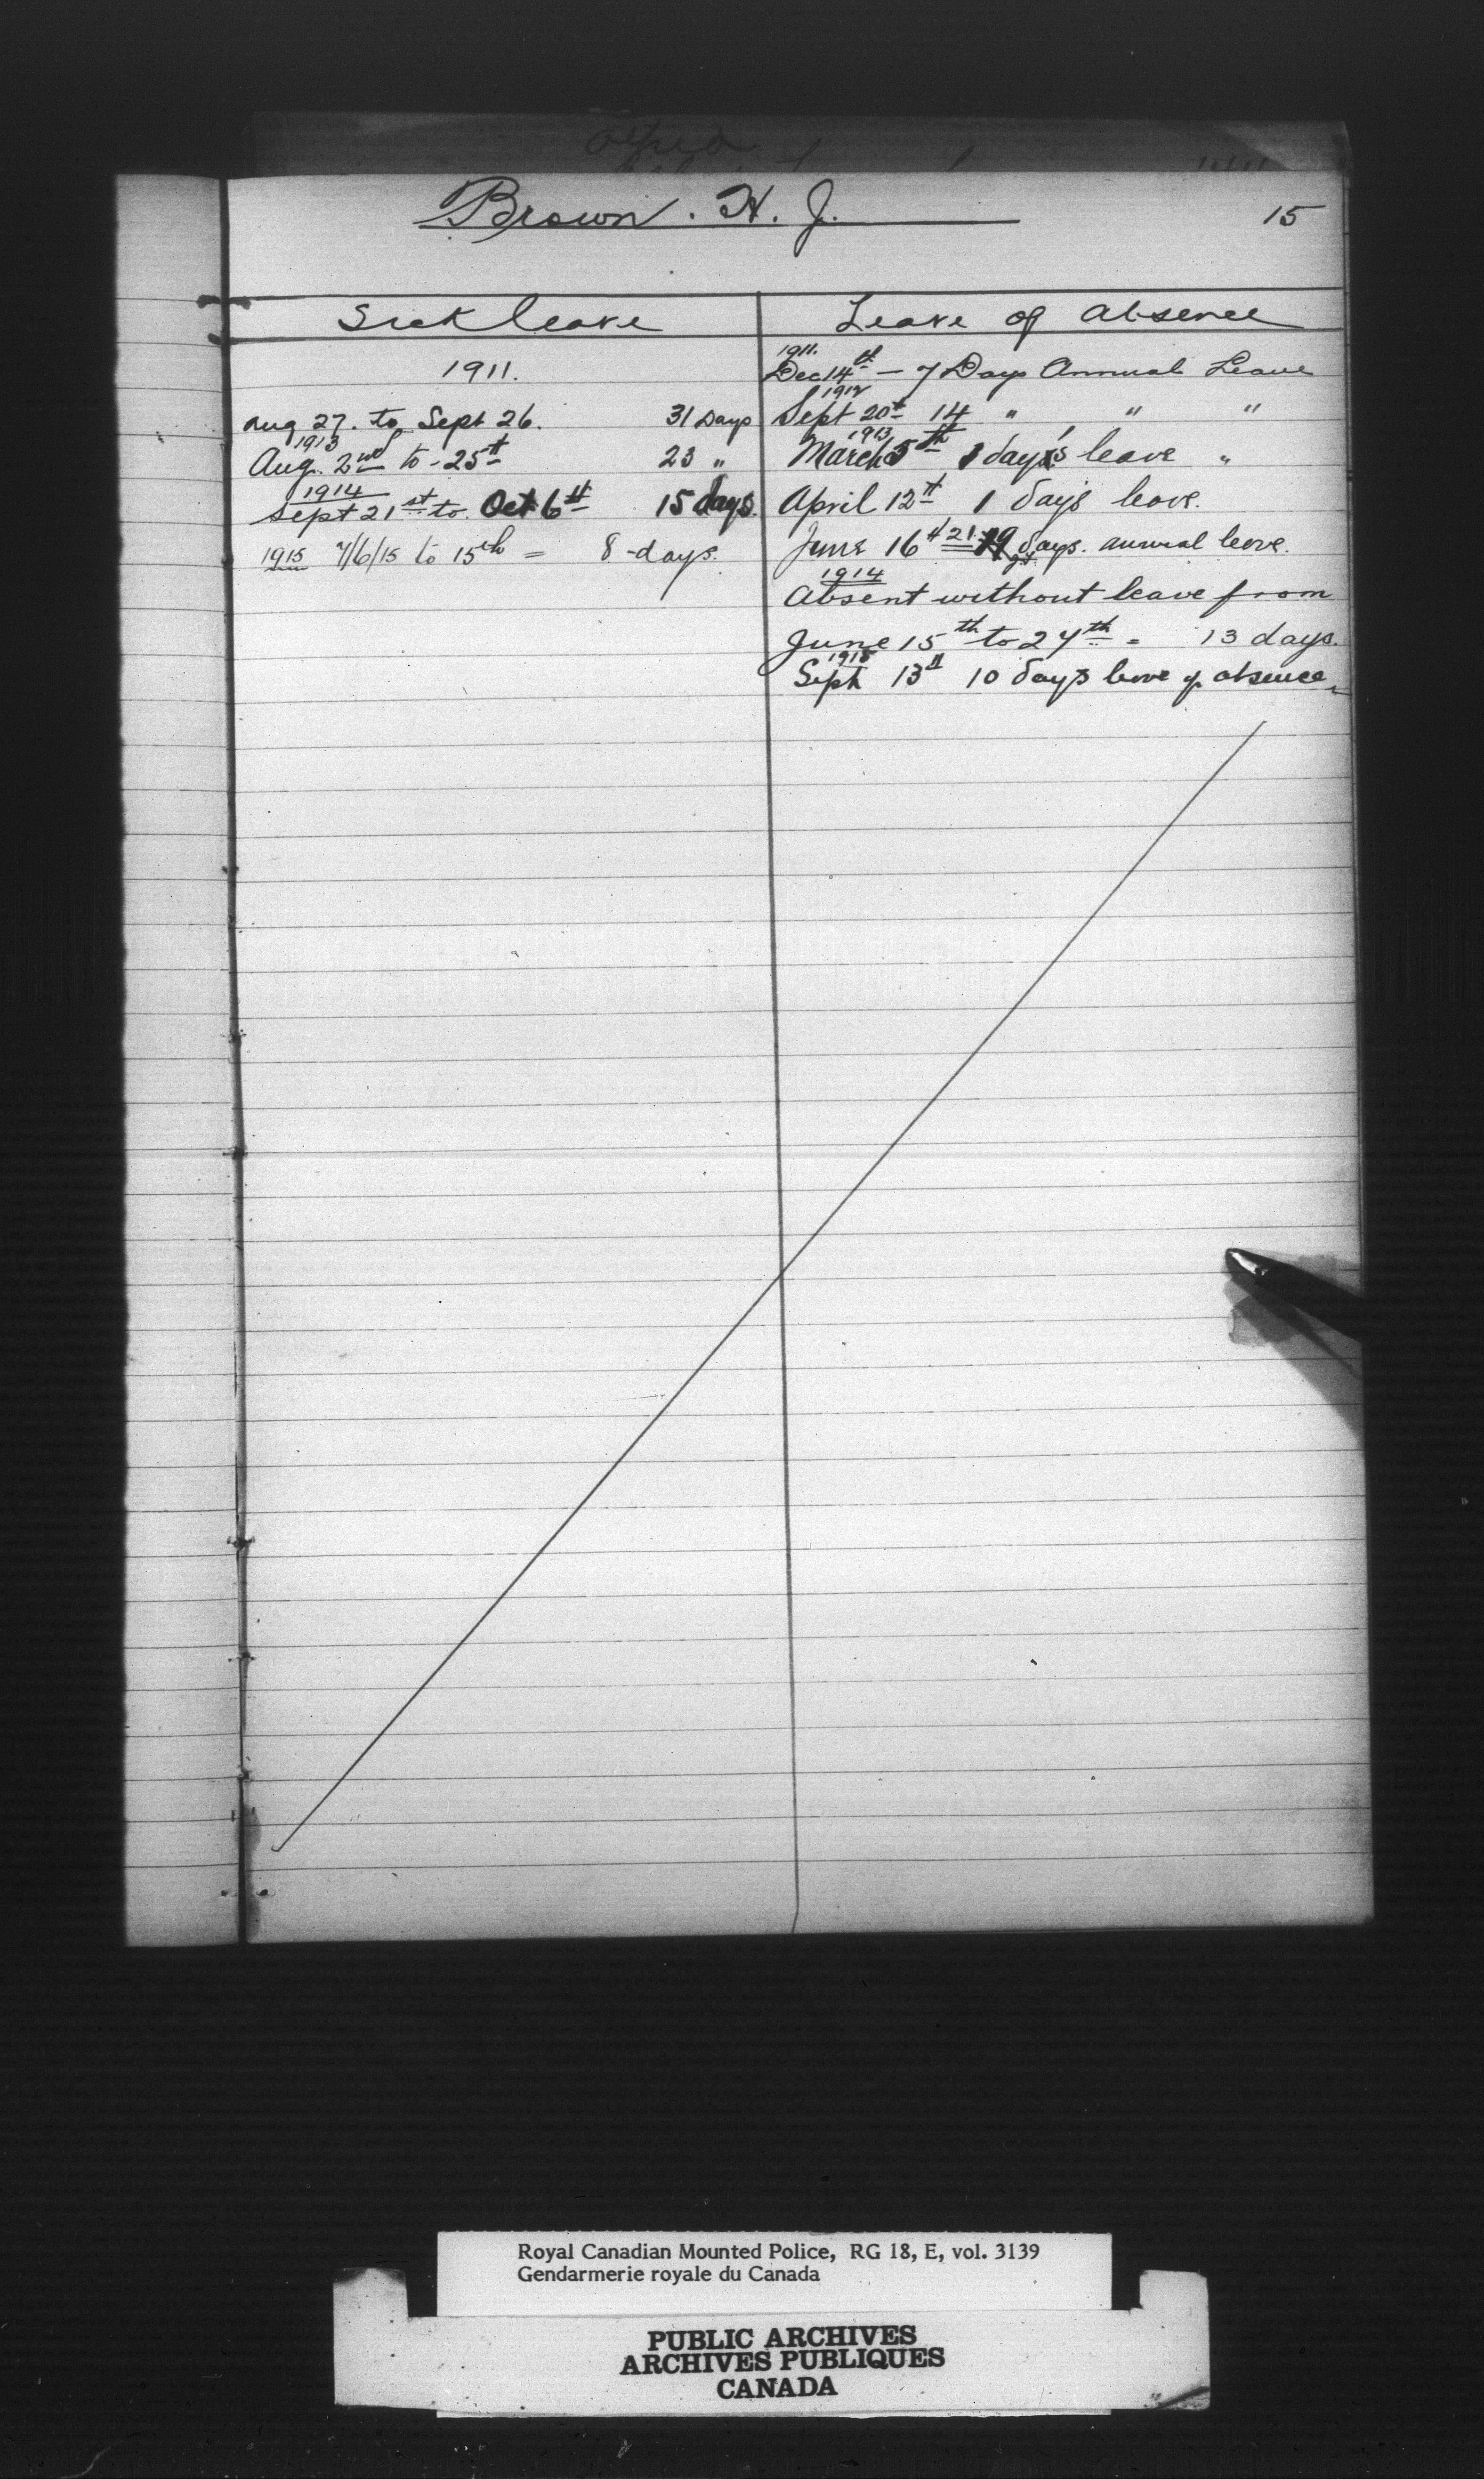 Brown. H. J.
15
Sick leave
Leave of absence
1911.
Aug 27. to Sept 26. 31 Days
1913
Aug. 2nd to - 25th 23 "
1914
Sept 21st to Oct 6th 15 days.
1915 7/6/15 to 15th = 8 - days.
1911.
Dec 14th - 7 Days Annual Leave
1912
Sept 20th 14 " " "
1913
March 5th 1 day's leave "
April 12th 1 day's leave.
June 16th 21 19 days. annual leave.
1914
Absent without leave from
June 15th to 27th = 13 days.
1915
Sept 13th 10 days leave of absence.
Royal Canadian Mounted Police, RG 18, E, vol. 3139
Gendarmerie royale du Canada
PUBLIC ARCHIVES
ARCHIVES PUBLIQUES
CANADA